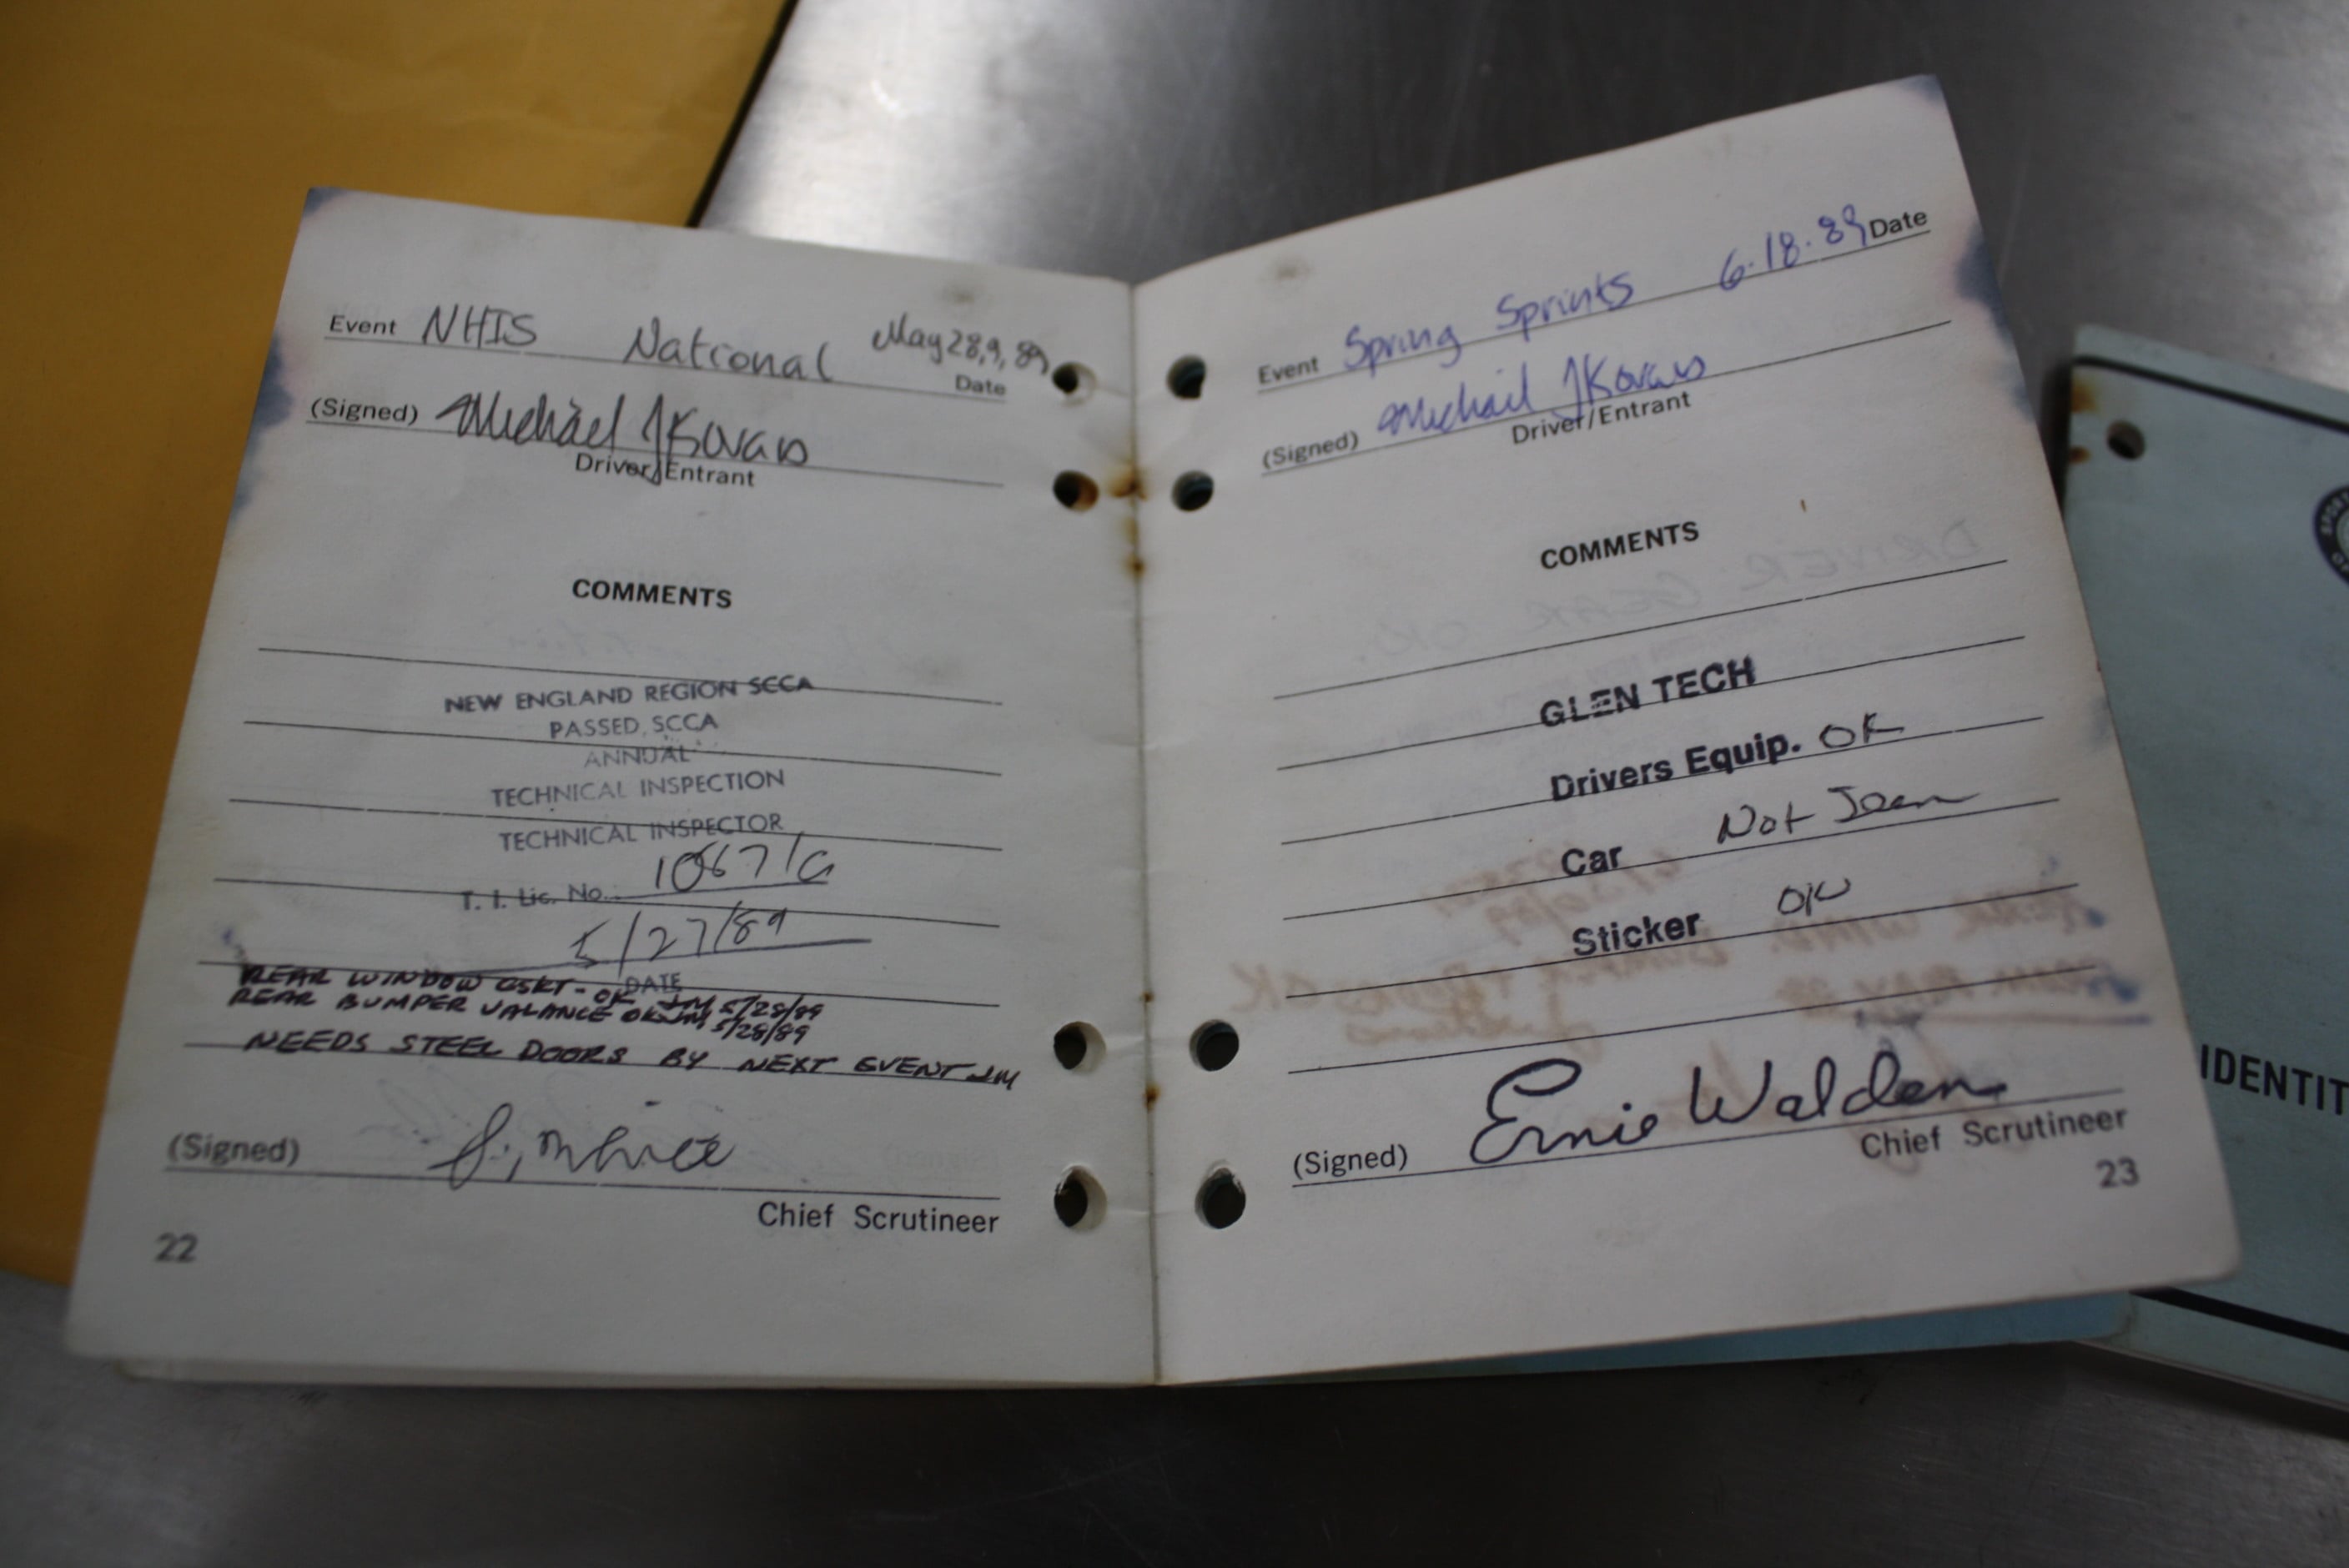 Event NHIS National May 28,9, 89
Date
(Signed) Michael J Kovacs
Driver/Entrant
COMMENTS
NEW ENGLAND REGION SCCA
PASSED, SCCA
ANNUAL
TECHNICAL INSPECTION
TECHNICAL INSPECTOR
T. I. Lic. No.
5/27/89
DATE
REAR WINDOW GSKT - OK JM 5/28/89
REAR BUMPER VALANCE OK JM 5/28/89
NEEDS STEEL DOORS BY NEXT EVENT JM
(Signed)
Chief Scrutineer
22
Event Spring Sprints 6.18.89 Date
(Signed) Michael J Kovacs
Driver/Entrant
COMMENTS
GLEN TECH
Drivers Equip. OK
Car Not Seen
Sticker OK
(Signed) Ernie Walden
Chief Scrutineer
23
IDENTIT